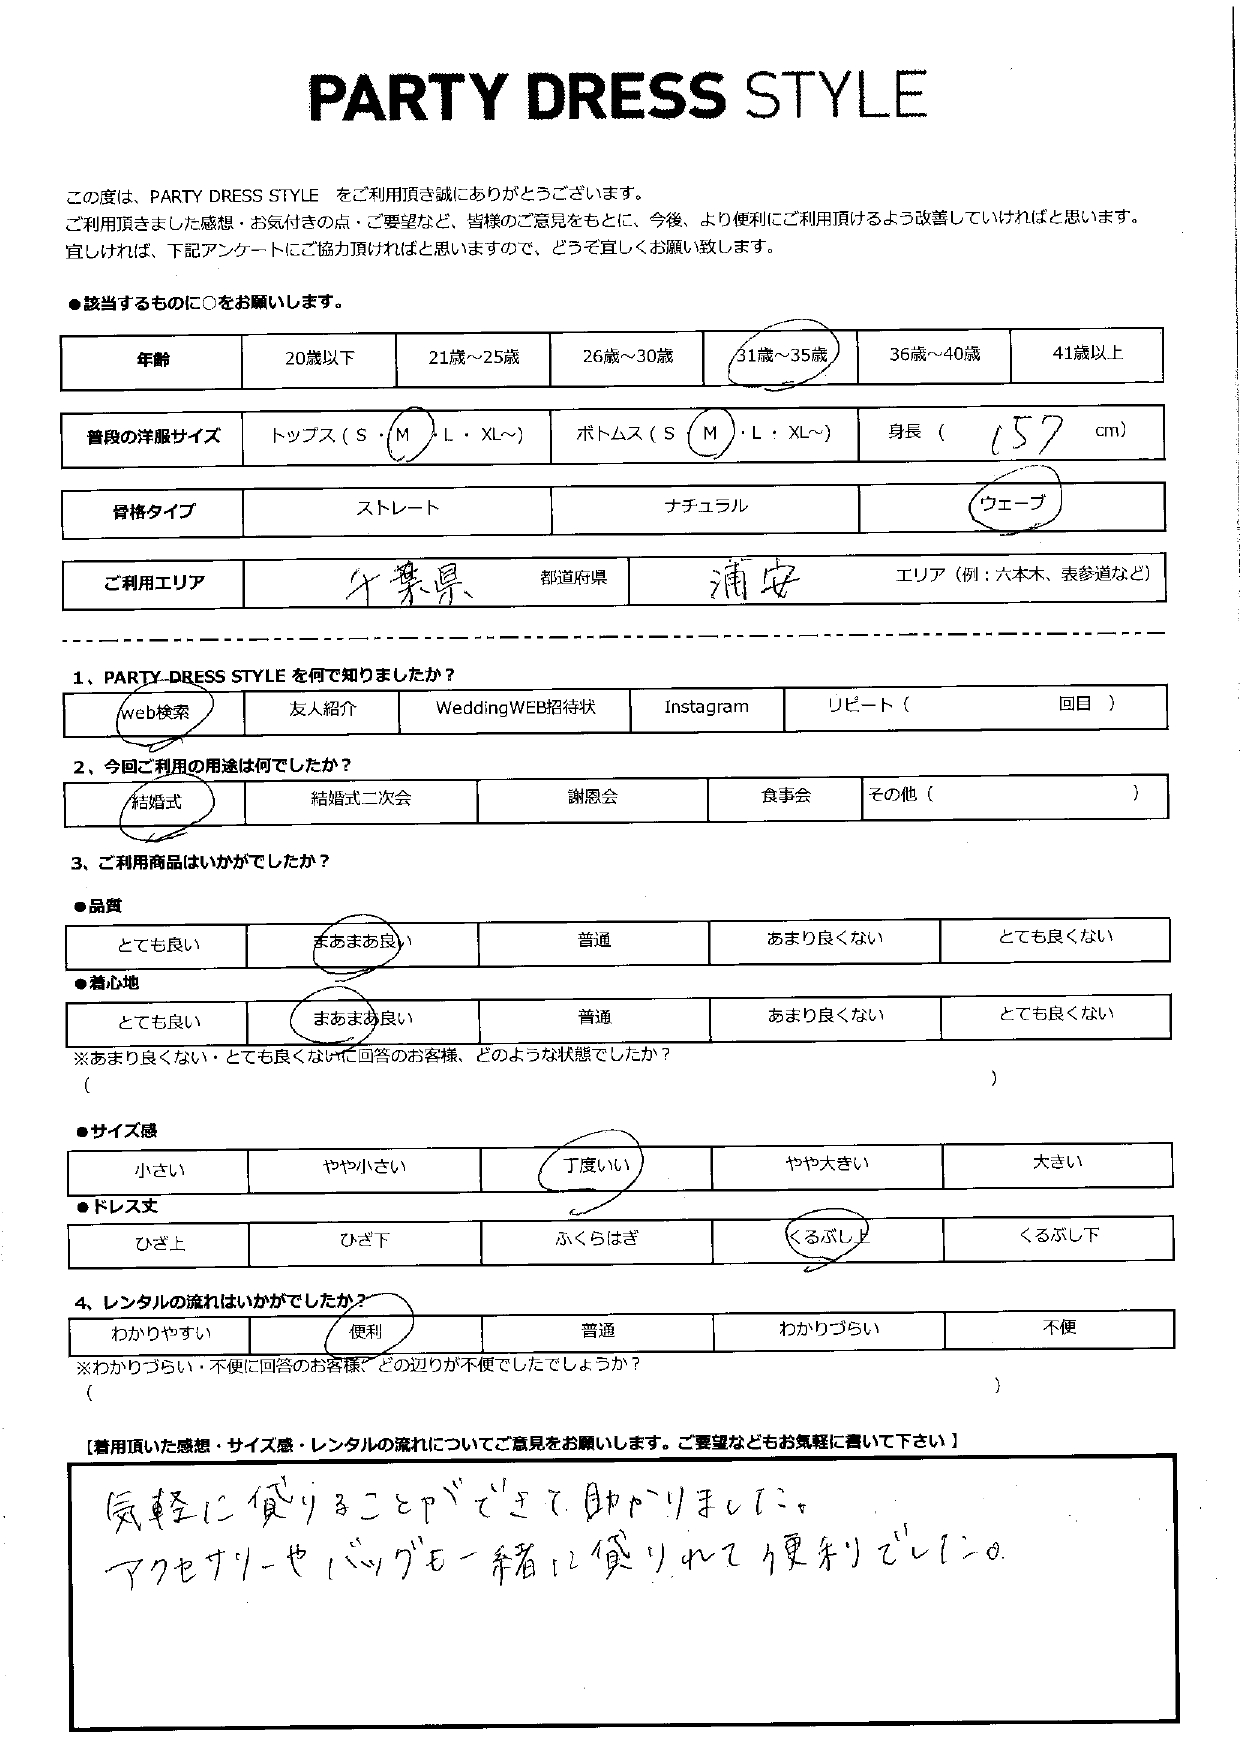 PARTY DRESS STYLE
この度は、PARTY DRESS STYLE をご利用頂き誠にありがとうございます。
ご利用頂きました感想・お気付きの点・ご要望など、皆様のご意見をもとに、今後、より便利にご利用頂けるよう改善していければと思います。
宜しければ、下記アンケートにご協力頂ければと思いますので、どうぞ宜しくお願い致します。
●該当するものに○をお願いします。
年齢 20歳以下 21歳～25歳 26歳～30歳 31歳～35歳 36歳～40歳 41歳以上
普段の洋服サイズ トップス ( S ・ M ・ L ・ XL～) ボトムス ( S M ・ L ・ XL～) 身長 ( 157 cm)
骨格タイプ ストレート ナチュラル ウェーブ
ご利用エリア 千葉県 都道府県 浦安 エリア（例：六本木、表参道など）
1、PARTY DRESS STYLE を何で知りましたか？
web検索 友人紹介 WeddingWEB招待状 Instagram リピート（ 回目 ）
2、今回ご利用の用途は何でしたか？
結婚式 結婚式二次会 謝恩会 食事会 その他（ ）
3、ご利用商品はいかがでしたか？
●品質
とても良い まあまあ良い 普通 あまり良くない とても良くない
●着心地
とても良い まあまあ良い 普通 あまり良くない とても良くない
※あまり良くない・とても良くないに回答のお客様、どのような状態でしたか？
（ ）
●サイズ感
小さい やや小さい 丁度いい やや大きい 大きい
●ドレス丈
ひざ上 ひざ下 ふくらはぎ くるぶし上 くるぶし下
4、レンタルの流れはいかがでしたか？
わかりやすい 便利 普通 わかりづらい 不便
※わかりづらい・不便に回答のお客様、どの辺りが不便でしたでしょうか？
（ ）
【着用頂いた感想・サイズ感・レンタルの流れについてご意見をお願いします。ご要望などもお気軽に書いて下さい 】
気軽に借りることができて助かりました。
アクセサリーやバッグも一緒に借りれて便利でした。